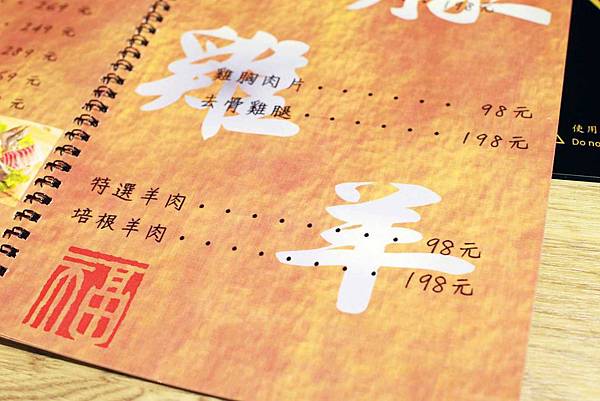 198元
249元
289元
雞
雞胸肉片 . . . . . . 98元
去骨雞腿 . . . . . . 198元
羊
特選羊肉 . . . . . . . 98元
培根羊肉 . . . . . . . 198元
福
使用
Do no